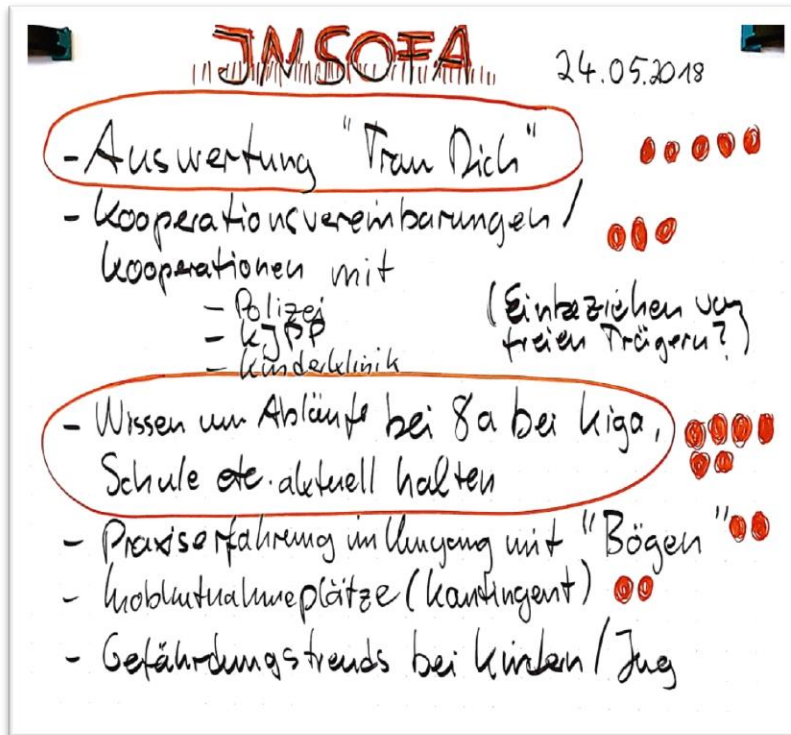 INSOFA
24.05.2018
- Auswertung "Trau Dich"
- Kooperationsvereinbarungen/
Kooperationen mit
- Polizei
- KJPP
- Kinderklinik
(Einbeziehen von
freien Trägern?)
- Wissen um Abläufe bei 8a bei Kiga,
Schule etc. aktuell halten
- Praxiserfahrung im Umgang mit "Bögen"
- Inobhutnahmeplätze (Kontingent)
- Gefährdungstrends bei Kindern / Jug